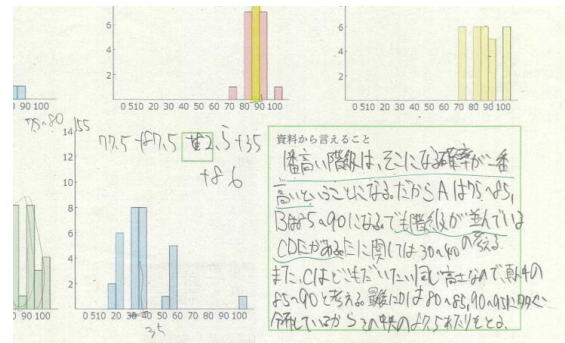 6
4
2
0 510 20 30 40 50 60 70 80 90 100
6
4
2
0 510 20 30 40 50 60 70 80 90 100
90 100
75~80
14
155
12
10
8
6
4
2
77.5 +87.5 +82.5 +35
+86
90 100
0 510 20 30 40 50 60 70 80 90 100
35
資料から言えること
1番高い階級は、そこになる確率が一番
高いということになる。だから Aは75~85,
Bは85~90になる。でも階級が並んでいる
CDEがある。Eに関しては30~40の考える。
また、Cはどこもだいたい同じ高さなので、真ん中の
85~90と考える。最後にDは80~85,90~95に
分布しているから この中央の87.5あたりをとる。